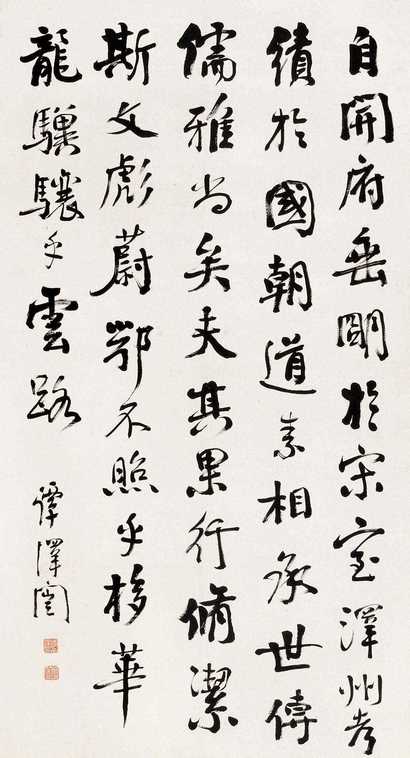 自開府垂朙於宋室澤州考
績於國朝道素相承世傳
儒雅尚矣夫其果行脩潔
斯文彪蔚鄂不照乎栘華
龍驥驤乎雲路
譚澤闓